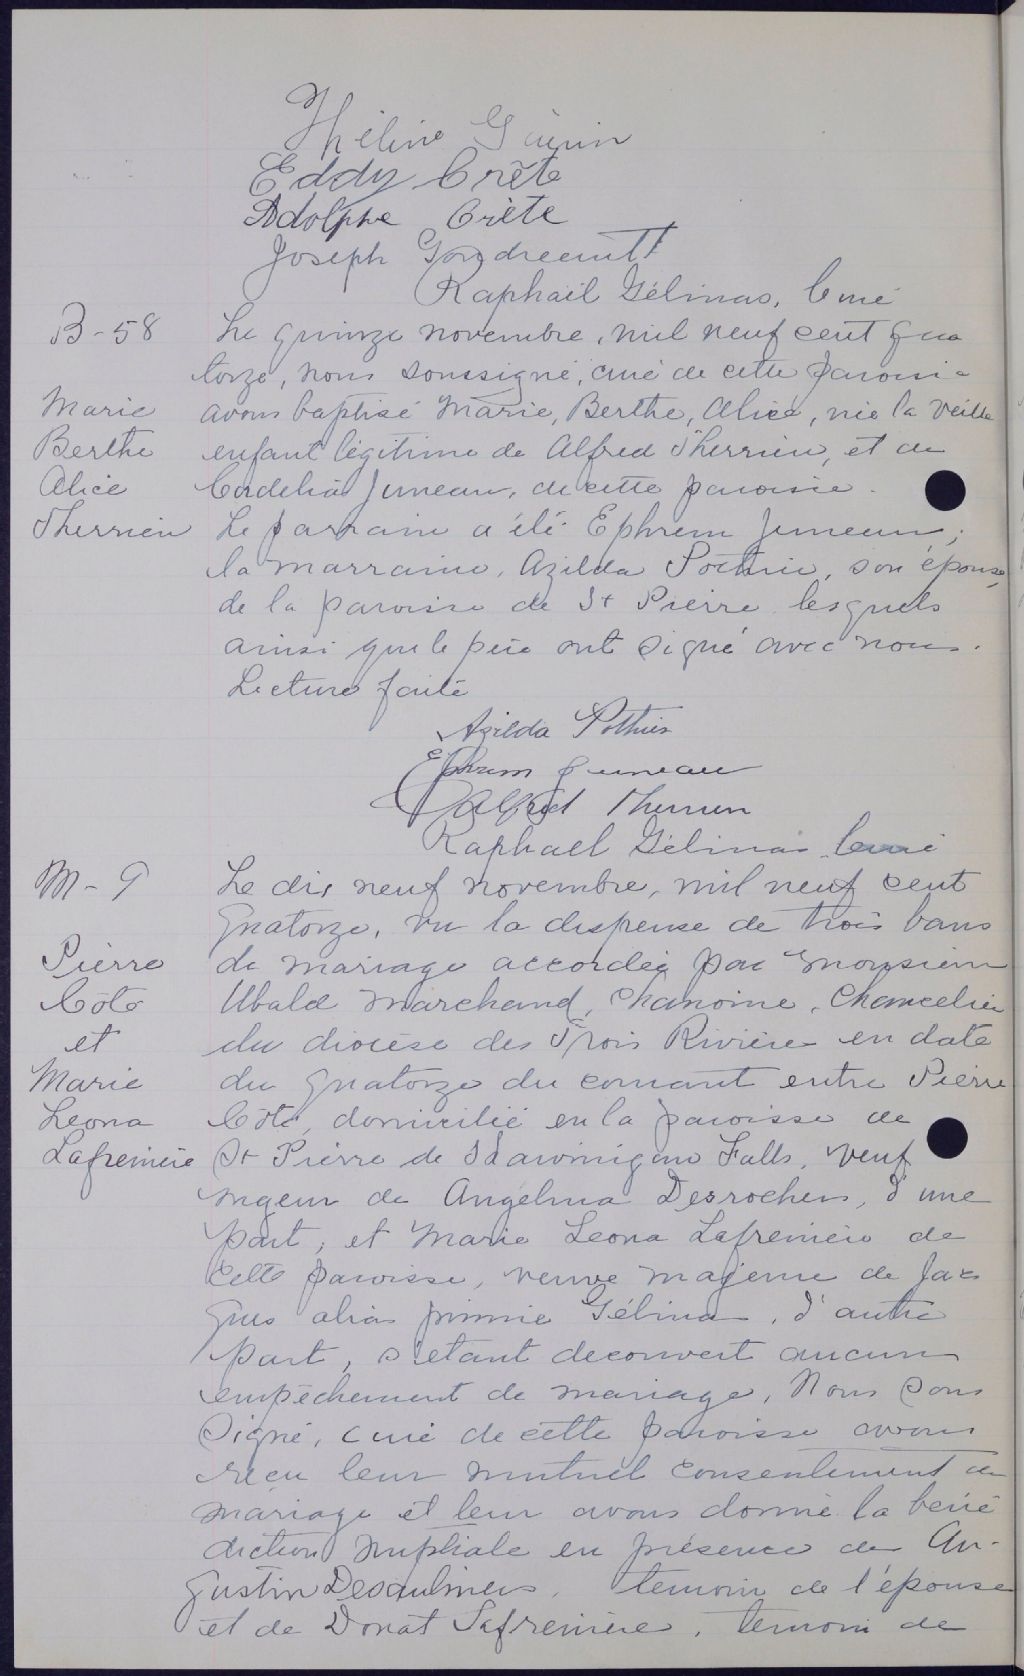 Héline Guérin
Eddy Crête
Adolphe Crête
Joseph Goudreault
Raphaël Gélinas, Curé
B-58
Le quinze novembre, mil neuf cent qua
torze, nous soussigné, curé de cette paroisse
Marie
avons baptisé Marie, Berthe, Alice, née la veille
Berthe
enfant légitime de Alfred Therrien, et de
Alice
Cordelia Juneau, de cette paroisse.
Therrien
Le parrain a été Ephrem Juneau;
la marraine, Azilda Pothier, son épouse,
de la paroisse de St Pierre lesquels
ainsi que le père ont signé avec nous.
Lecture faite
Azilda Pothier
Ephrem Juneau
Alfred Therrien
Raphaël Gélinas Curé
M-9
Le dix neuf novembre, mil neuf cent
quatorze, vu la dispense de trois bans
Pierre
de mariage accordée par Monsieur
Côté
Ubald Marchand, Chanoine, Chancelier
et
du diocèse des Trois Rivières en date
Marie
du quatorze du courant entre Pierre
Leona
Côté, domicilié en la paroisse de
Lafrenière
St Pierre de Shawinigan Falls, veuf
majeur de Angelina Desrochers, d'une
part, et Marie Leona Lafrenière de
cette paroisse, veuve majeure de Jac
ques alias Gélinas, d'autre
part, s'étant decouvert aucun
empêchement de mariage, Nous sous
signé, curé de cette paroisse avons
reçu leur mutuel consentement de
mariage et leur avons donné la béné
diction nuptiale en présence de Au-
gustin Desaulniers, temoin de l'épouse
et de Donat Lafrenière, temoin de